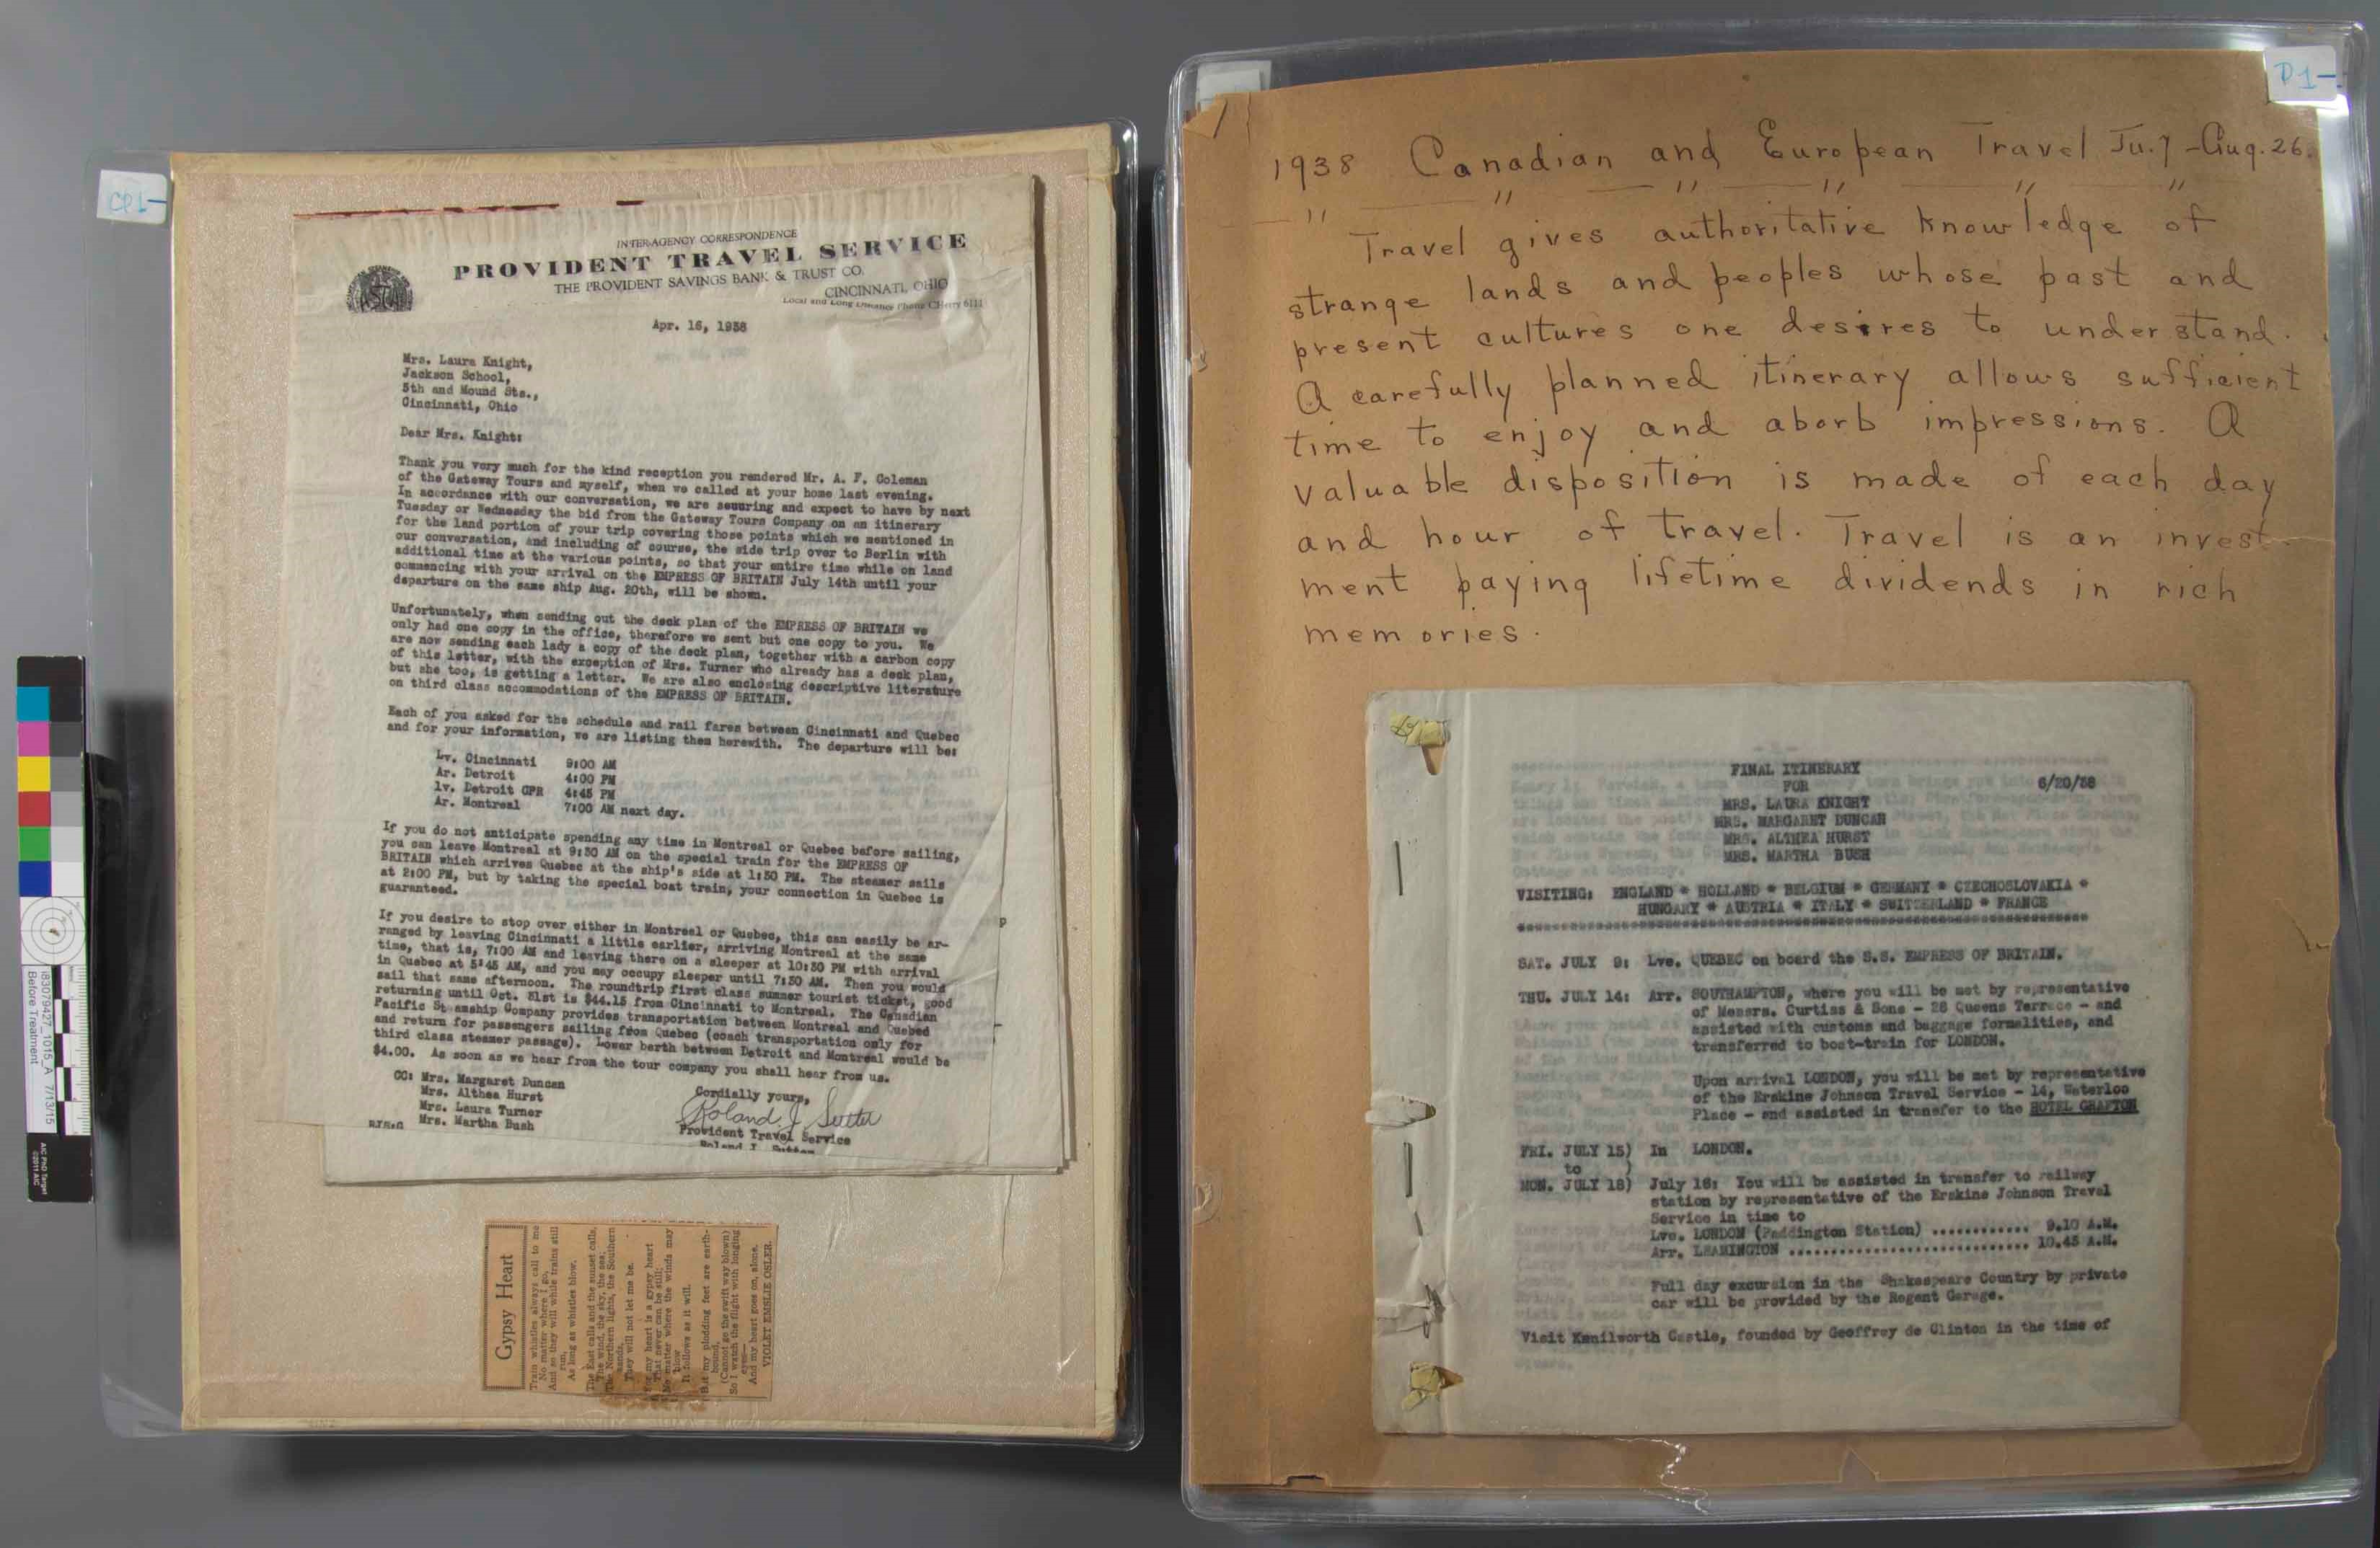 CP1-
INTER-AGENCY CORRESPONDENCE
PROVIDENT TRAVEL SERVICE
THE PROVIDENT SAVINGS BANK & TRUST CO.
CINCINNATI, OHIO
Local and Long Distance Phone CHerry 6111
ASTA
Apr. 16, 1938
Mrs. Laura Knight,
Jackson School,
5th and Mound Sts.,
Cincinnati, Ohio
Dear Mrs. Knight:
Thank you very much for the kind reception you rendered Mr. A. F. Coleman
of the Gateway Tours and myself, when we called at your home last evening.
In accordance with our conversation, we are securing and expect to have by next
Tuesday or Wednesday the bid from the Gateway Tours Company on an itinerary
for the land portion of your trip covering those points which we mentioned in
our conversation, and including of course, the side trip over to Berlin with
additional time at the various points, so that your entire time while on land
commencing with your arrival on the EMPRESS OF BRITAIN July 14th until your
departure on the same ship Aug. 20th, will be shown.
Unfortunately, when sending out the deck plan of the EMPRESS OF BRITAIN we
only had one copy in the office, therefore we sent but one copy to you. We
are now sending each lady a copy of the deck plan, together with a carbon copy
of this letter, with the exception of Mrs. Turner who already has a deck plan,
but she too, is getting a letter. We are also enclosing descriptive literature
on third class accommodations of the EMPRESS OF BRITAIN.
Each of you asked for the schedule and rail fares between Cincinnati and Quebec
and for your information, we are listing them herewith. The departure will be:
Lv. Cincinnati 9:00 AM
Ar. Detroit 4:00 PM
lv. Detroit CPR 4:45 PM
Ar. Montreal 7:00 AM next day.
If you do not anticipate spending any time in Montreal or Quebec before sailing,
you can leave Montreal at 9:30 AM on the special train for the EMPRESS OF
BRITAIN which arrives Quebec at the ship's side at 1:30 PM. The steamer sails
at 2:00 PM, but by taking the special boat train, your connection in Quebec is
guaranteed.
If you desire to stop over either in Montreal or Quebec, this can easily be ar-
ranged by leaving Cincinnati a little earlier, arriving Montreal at the same
time, that is, 7:00 AM and leaving there on a sleeper at 10:30 PM with arrival
in Quebec at 5:45 AM, and you may occupy sleeper until 7:30 AM. Then you would
sail that same afternoon. The roundtrip first class summer tourist ticket, good
returning until Oct. 31st is $44.15 from Cincinnati to Montreal. The Canadian
Pacific St amship Company provides transportation between Montreal and Quebed
and return for passengers sailing from Quebec (coach transportation only for
third class steamer passage). Lower berth between Detroit and Montreal would be
$4.00. As soon as we hear from the tour company you shall hear from us.
CC: Mrs. Margaret Duncan
Mrs. Althea Hurst
Mrs. Laura Turner
Mrs. Martha Bush
RJS.G
Cordially yours,
Roland J. Sutter
Provident Travel Service
Roland J. Sutter
Gypsy Heart
Train whistles always call to me
No matter where I go,
And so they will while trains still
run,
As long as whistles blow.
The East calls and the sunset calls,
The wind, the sky, the sea;
The Northern lights, the Southern
sands,
They will not let me be.
For my heart is a gypsy heart
That never can be still;
No matter where the winds may
blow
It follows as it will.
But my plodding feet are earth-
bound,
(Cannot go the swift way blown)
So I watch the flight with longing
eyes—
And my heart goes on, alone.
VIOLET EMSLIE OSLER.
P1-
1938 Canadian and European Travel Ju.7-Aug.26.
" " " " " "
Travel gives authoritative knowledge of
strange lands and peoples whose past and
present cultures one desires to understand.
A carefully planned itinerary allows sufficient
time to enjoy and aborb impressions. A
valuable disposition is made of each day
and hour of travel. Travel is an invest-
ment paying lifetime dividends in rich
memories.
FINAL ITINERARY
FOR 6/20/38
MRS. LAURA KNIGHT
MRS. MARGARET DUNCAN
MRS. ALTHEA HURST
MRS. MARTHA BUSH
VISITING: ENGLAND * HOLLAND * BELGIUM * GERMANY * CZECHOSLOVAKIA *
HUNGARY * AUSTRIA * ITALY * SWITZERLAND * FRANCE
SAT. JULY 9: Lve. QUEBEC on board the S.S. EMPRESS OF BRITAIN.
THU. JULY 14: Arr. SOUTHAMPTON, where you will be met by representative
of Messrs. Curtiss & Sons - 28 Queens Terrace - and
assisted with customs and baggage formalities, and
transferred to boat-train for LONDON.
Upon arrival LONDON, you will be met by representative
of the Erskine Johnson Travel Service - 14, Waterloo
Place - and assisted in transfer to the HOTEL GRAFTON
FRI. JULY 15) In LONDON.
to )
MON. JULY 18) July 16: You will be assisted in transfer to railway
station by representative of the Erskine Johnson Travel
Service in time to
Lve. LONDON (Paddington Station) ............ 9.10 A.M.
Arr. LEAMINGTON ............................. 10.45 A.M.
Full day excursion in the Shakespeare Country by private
car will be provided by the Regent Garage.
Visit Kenilworth Castle, founded by Geoffrey de Clinton in the time of
i83079427_1015_A 7/13/15
Before Treatment
AIC PhD Target
©2011 AIC